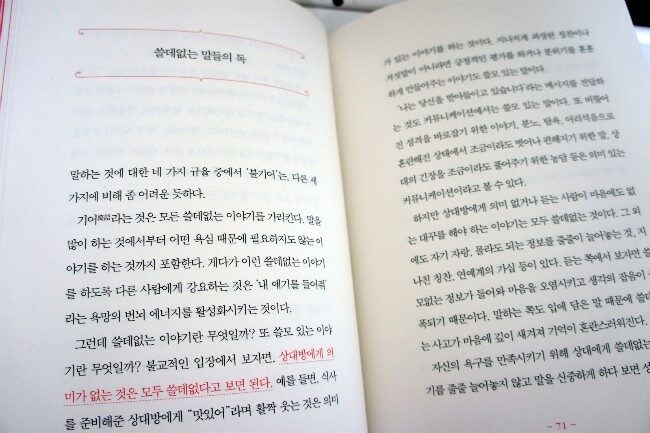 쓸데없는 말들의 독
말하는 것에 대한 네 가지 규율 중에서 '불기어'는, 다른 세
가지에 비해 좀 어려운 듯하다.
기어綺語라는 것은 모든 쓸데없는 이야기를 가리킨다. 말을
많이 하는 것에서부터 어떤 욕심 때문에 필요하지도 않는 이
야기를 하는 것까지 포함한다. 게다가 이런 쓸데없는 이야기
를 하도록 다른 사람에게 강요하는 것은 '내 얘기를 들어줘'
라는 욕망의 번뇌 에너지를 활성화시키는 것이다.
그런데 쓸데없는 이야기란 무엇일까? 또 쓸모 있는 이야
기란 무엇일까? 불교적인 입장에서 보자면, 상대방에게 의
미가 없는 것은 모두 쓸데없다고 보면 된다. 예를 들면, 식사
를 준비해준 상대방에게 "맛있어"라며 활짝 웃는 것은 의미
가 있는 이야기를 하는 것이다. 지나치게 과장된 칭찬이나
거짓말이 아니라면 긍정적인 평가를 하거나 분위기를 훈훈
하게 만들어주는 이야기도 쓸모 있는 말이다.
'나는 당신을 받아들이고 있습니다'라는 메시지를 전달하
는 것도 커뮤니케이션에서는 쓸모 있는 말이다. 또 비뚤어
진 성격을 바로잡기 위한 이야기, 분노, 탐욕, 어리석음으로
혼란해진 상태에서 조금이라도 벗어나 편해지기 위한 말, 상
대의 긴장을 조금이라도 풀어주기 위한 농담 등은 의미 있는
커뮤니케이션이라고 볼 수 있다.
하지만 상대방에게 의미 없거나 듣는 사람이 마음에도 없
는 대꾸를 해야 하는 이야기는 모두 쓸데없는 것이다. 그 외
에도 자기 자랑, 몰라도 되는 정보를 줄줄이 늘어놓는 것, 지
나친 칭찬, 연예계의 가십 등이 있다. 듣는 쪽에서 보자면 쓸
모없는 정보가 들어와 마음을 오염시키고 생각의 잡음이 증
폭되기 때문이다. 말하는 쪽도 입에 담은 말 때문에 쓸데
는 사고가 마음에 깊이 새겨져 기억이 혼란스러워진다.
자신의 욕구를 만족시키기 위해 상대에게 쓸데없는
기를 줄줄 늘어놓지 않고 말을 신중하게 하다 보면 상
- 71 -